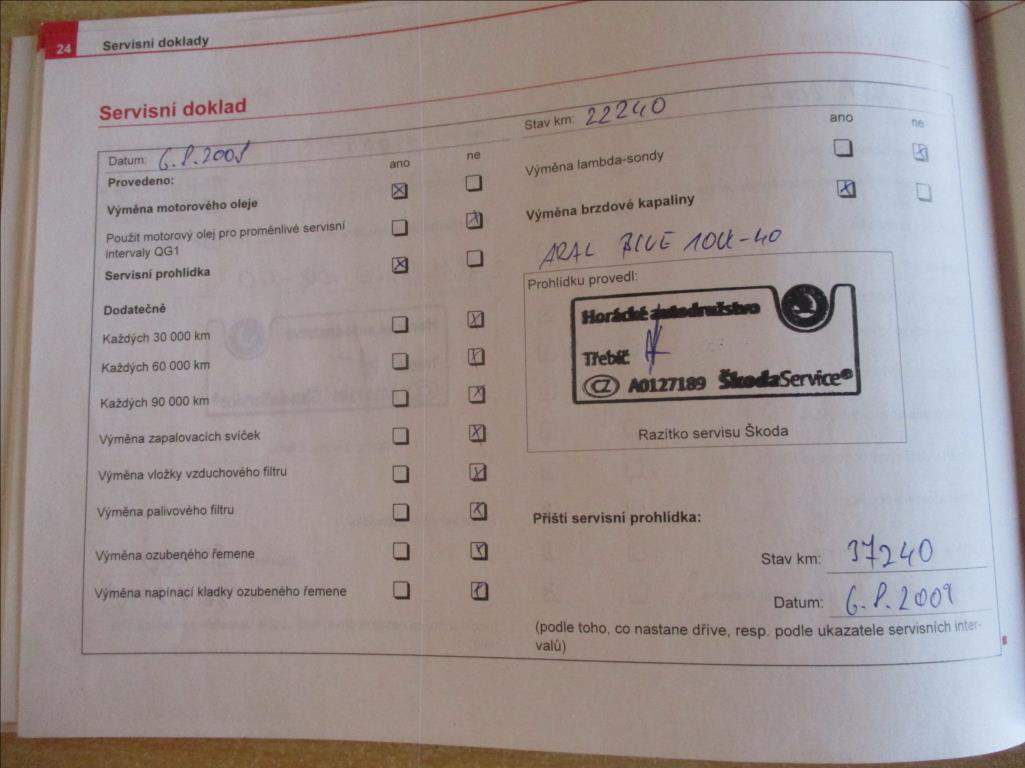 24 Servisní doklady
Servisní doklad
Datum: 6.8.2008
ano ne
Provedeno:
Výměna motorového oleje
Použit motorový olej pro proměnlivé servisní
intervaly QG1
Servisní prohlídka
Dodatečně
Každých 30 000 km
Každých 60 000 km
Každých 90 000 km
Výměna zapalovacích svíček
Výměna vložky vzduchového filtru
Výměna palivového filtru
Výměna ozubeného řemene
Výměna napínací kladky ozubeného řemene
Stav km: 22240
ano ne
Výměna lambda-sondy
Výměna brzdové kapaliny
ARAL BLUE 10W-40
Prohlídku provedl:
Horácké autodružstvo
Třebíč
CZ A0127189 ŠkodaService®
Razítko servisu Škoda
Příští servisní prohlídka:
Stav km: 37240
Datum: 6.8.2009
(podle toho, co nastane dříve, resp. podle ukazatele servisních inter-
valů)